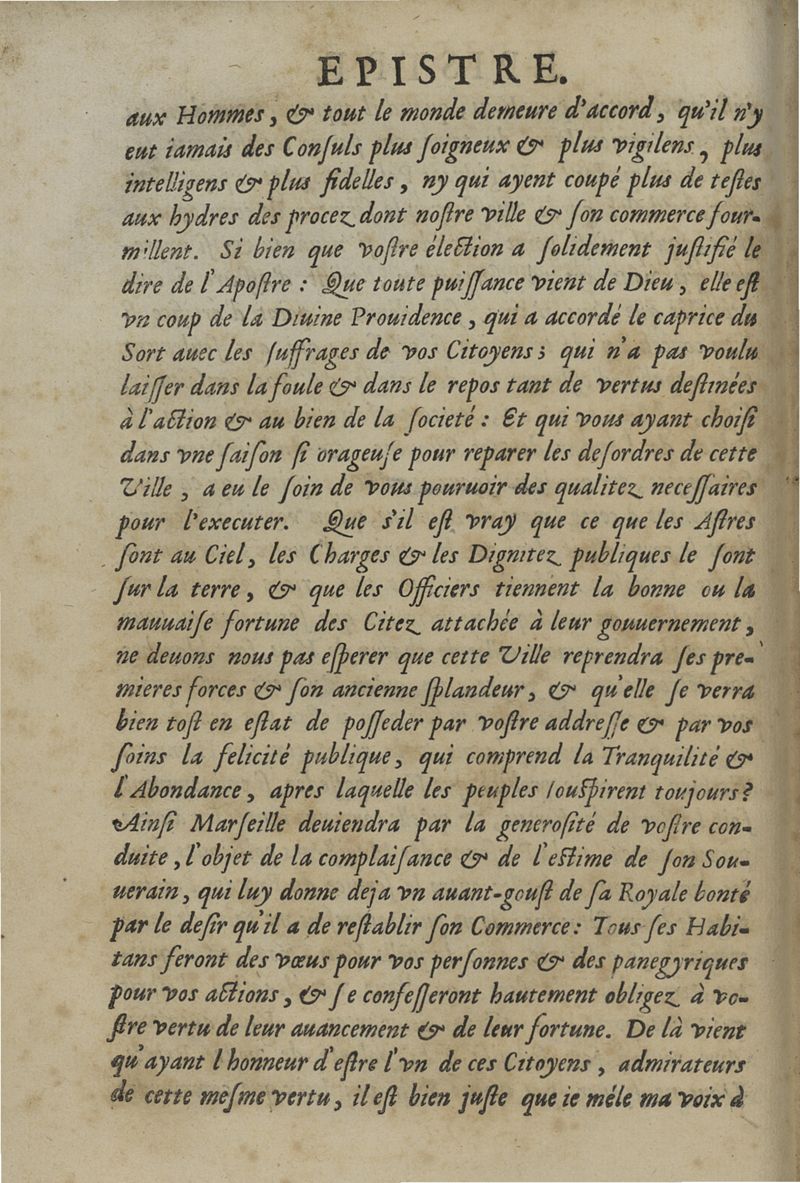 EPISTRE.
aux Hommes, & tout le monde demeure d'accord, qu'il n'y
eut iamais des Conſuls plus ſoigneux & plus vigilens, plus
intelligens & plus fidelles, ny qui ayent coupé plus de teſtes
aux hydres des procez dont noſtre ville & ſon commerce four-
millent. Si bien que voſtre élection a ſolidement juſtifié le
dire de l'Apoſtre : Que toute puiſſance vient de Dieu, elle eſt
vn coup de la Diuine Prouidence, qui a accordé le caprice du
Sort auec les ſuffrages de vos Citoyens; qui n'a pas voulu
laiſſer dans la foule & dans le repos tant de vertus deſtinées
à l'action & au bien de la ſocieté : Et qui vous ayant choiſi
dans vne ſaiſon ſi orageuſe pour reparer les deſordres de cette
Ville, a eu le ſoin de vous pouruoir des qualitez neceſſaires
pour l'executer. Que s'il eſt vray que ce que les Aſtres
ſont au Ciel, les Charges & les Dignitez publiques le ſont
ſur la terre, & que les Officiers tiennent la bonne ou la
mauuaiſe fortune des Citez attachée à leur gouuernement,
ne deuons nous pas eſperer que cette Ville reprendra ſes pre-
mieres forces & ſon ancienne ſplandeur, & qu'elle ſe verra
bien toſt en eſtat de poſſeder par voſtre addreſſe & par vos
ſoins la felicité publique, qui comprend la Tranquilité &
l'Abondance, apres laquelle les peuples ſouſpirent toujours?
Ainſi Marſeille deuiendra par la generoſité de voſtre con-
duite, l'objet de la complaiſance & de l'eſtime de ſon Sou-
uerain, qui luy donne deja vn auant-gouſt de ſa Royale bonté
par le deſir qu'il a de reſtablir ſon Commerce: Tous ſes Habi-
tans feront des vœus pour vos perſonnes & des panegyriques
pour vos actions, & ſe confeſſeront hautement obligez à vo-
ſtre vertu de leur auancement & de leur fortune. De là vient
qu'ayant l'honneur d'eſtre l'vn de ces Citoyens, admirateurs
de cette meſme vertu, il eſt bien juſte que ie méle ma voix à